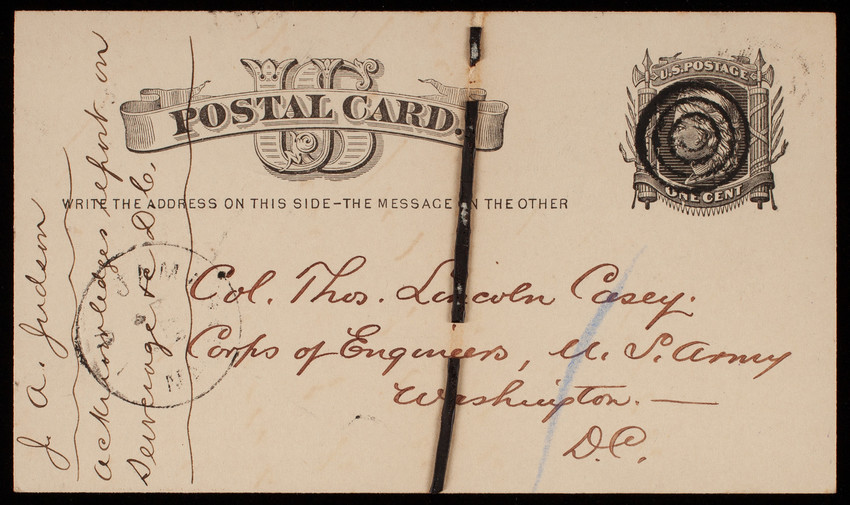 US
POSTAL CARD.
U.S. POSTAGE
ONE CENT
WRITE THE ADDRESS ON THIS SIDE-THE MESSAGE ON THE OTHER
Col. Thos. Lincoln Casey.
Corps of Engineers, U. S. Army
Washington.—
D.C.
J. A. Judson
acknowledges report on
Sewerage &c D.C.